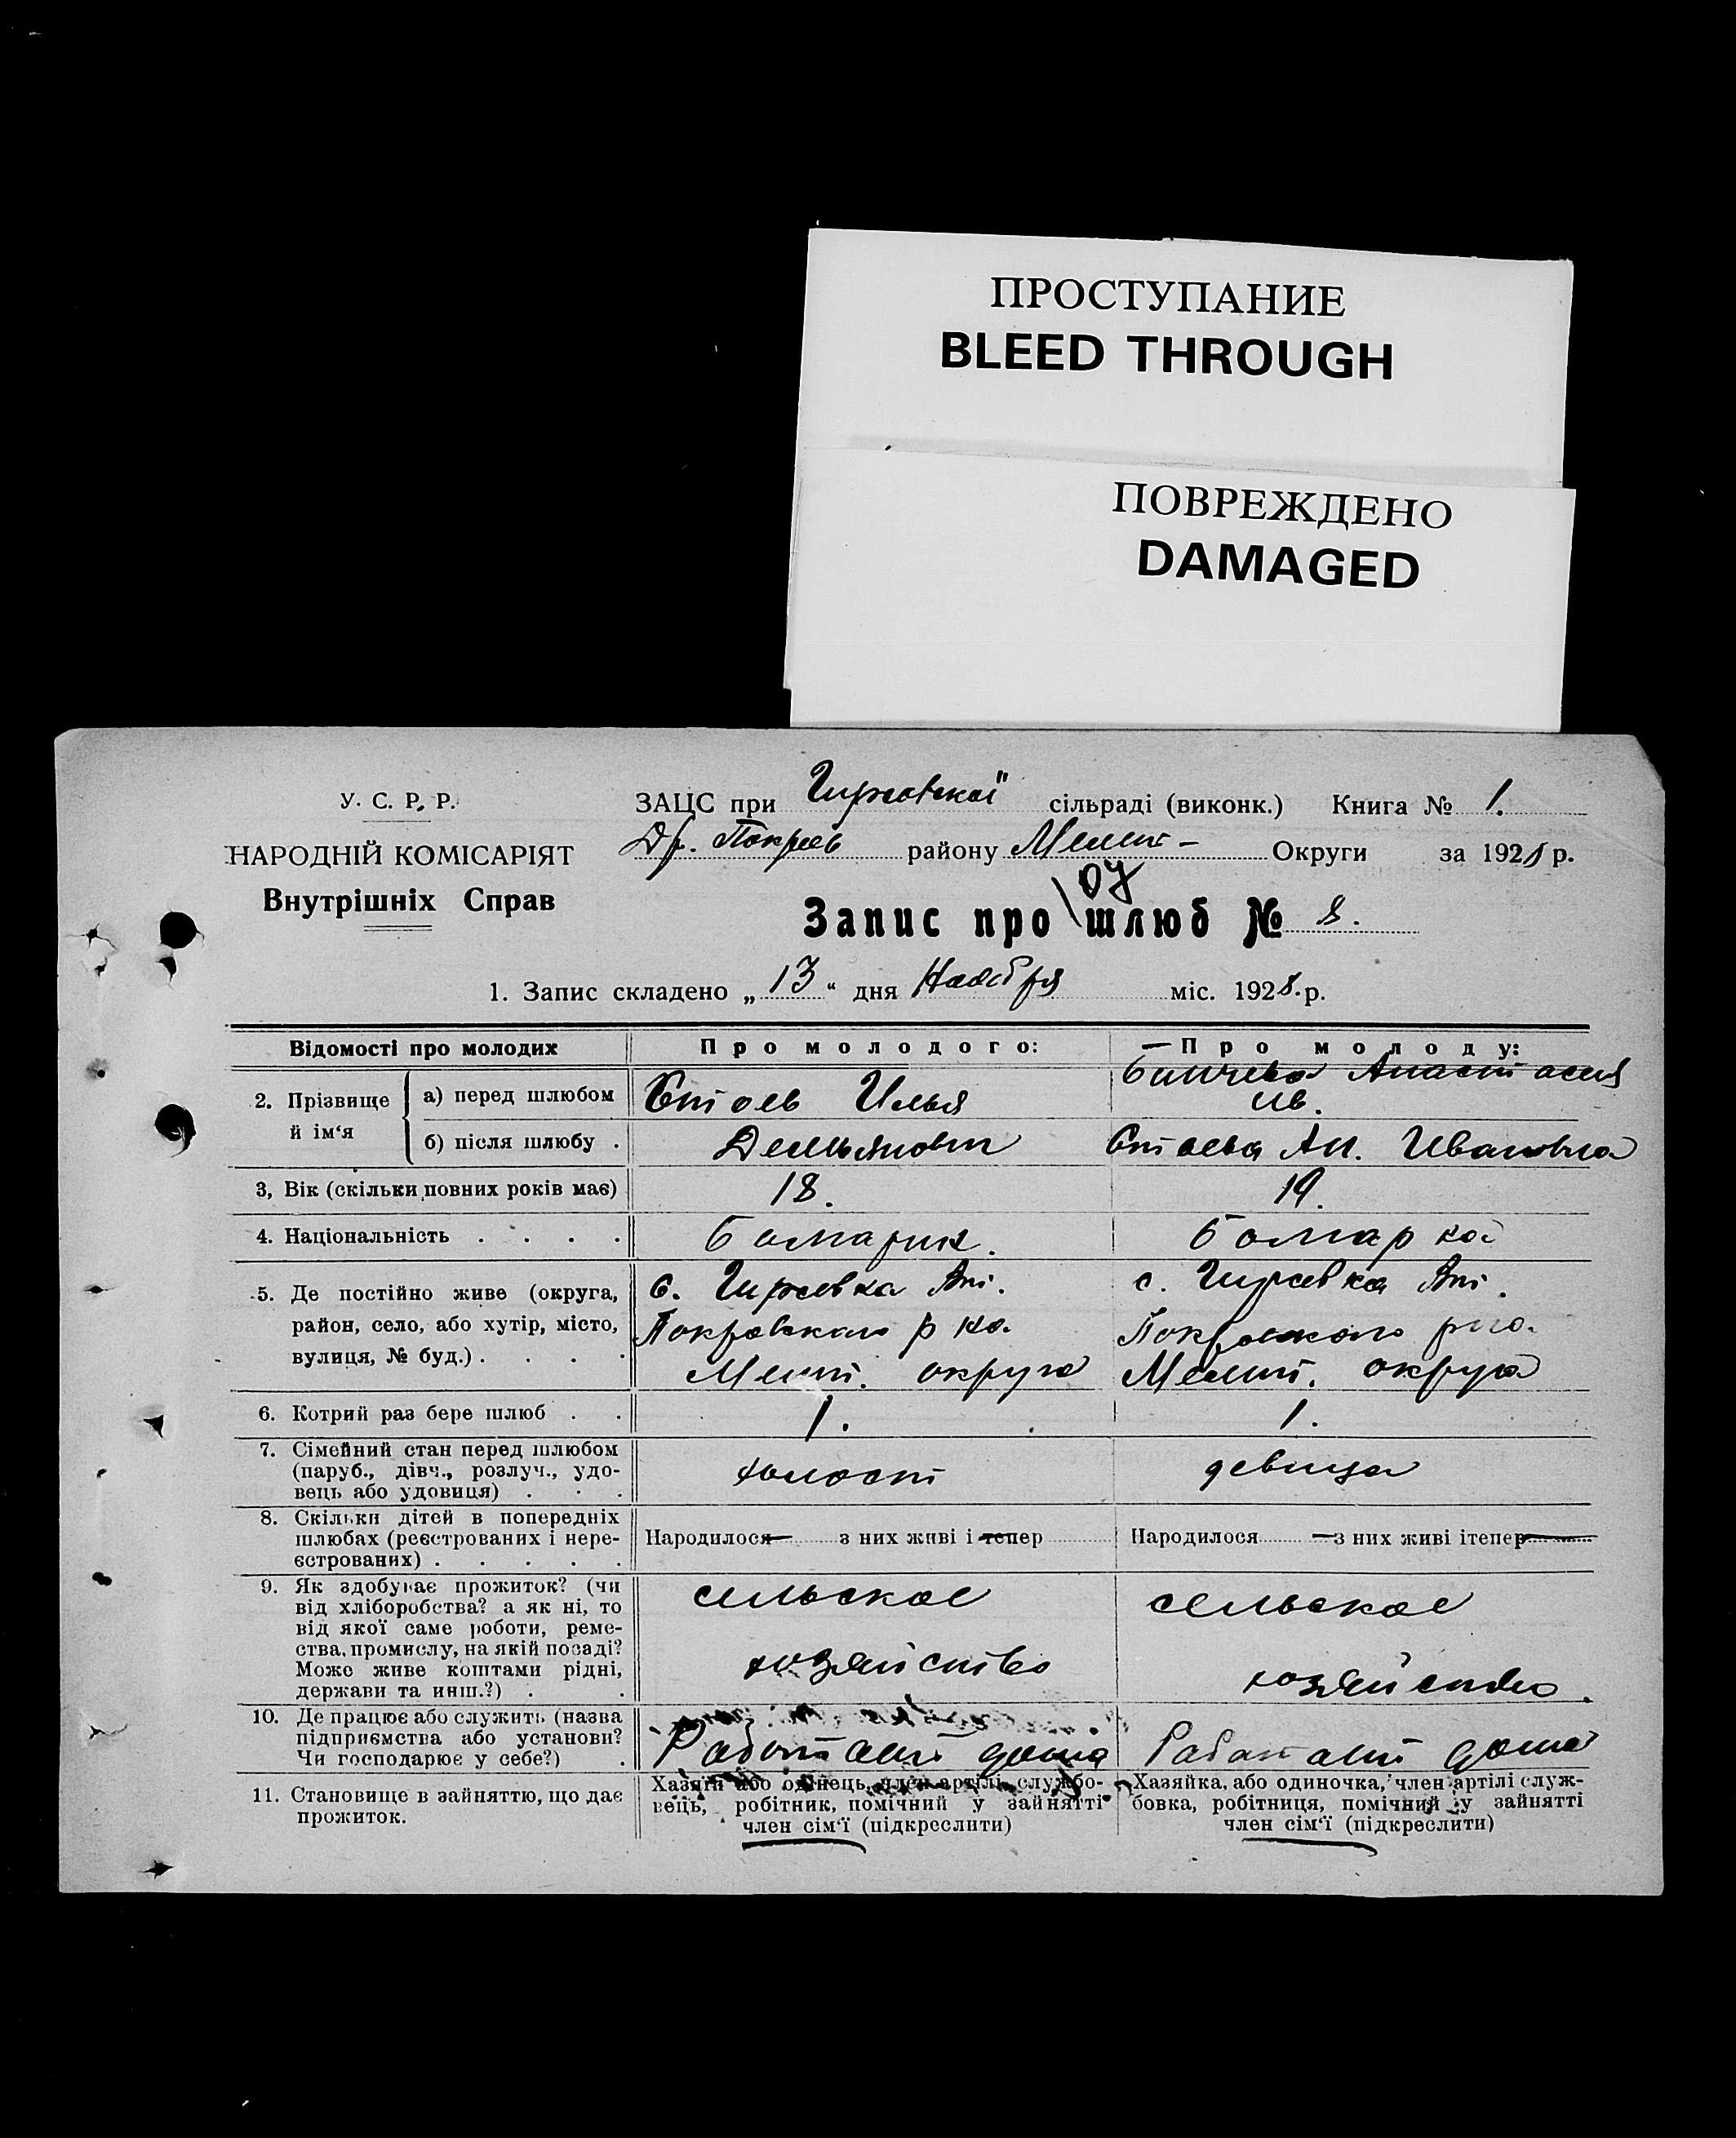 ПРОСТУПАНИЕ
BLEED THROUGH
ПОВРЕЖДЕНО
DAMAGED
У. С. Р. Р.
НАРОДНІЙ КОМІСАРІЯТ
Внутрішніх Справ
ЗАЦС при Гирсовской сільраді (виконк.) Книга № 1.
районy Мелит- Округи за 1928 р.
Запис про шлюб № 8.
1. Запис складено „13“ дня Ноября міс. 1928. р.
Відомості про молодих
Про молодого:
Про молоду:
2. Прізвище й ім‘я
а) перед шлюбом
Стоев Илья
Анастасия
Ив.
б) після шлюбу .
Демьянович
Стоева Ан. Ивановна
3, Вік (скільки повних років має)
18.
19.
4. Національність . . . .
Болгарин.
Болгарка
5. Де постійно живе (округа, район, село, або хутір, місто, вулиця, № буд.) . . . .
с. Гирсовка Ап.
Покровского р на.
Мелит. округа
с. Гирсовка Ап.
Покровского рна.
Мелит. округа
6. Котрий раз бере шлюб . .
1.
1.
7. Сімейний стан перед шлюбом (паруб., дівч., розлуч., удовець або удовиця) . . .
холост
девица
8. Скільки дітей в попередніх шлюбах (реєстрованих і нереєстрованих) . . . . .
Народилося з них живі і тепер
Народилося з них живі ітепер
9. Як здобуває прожиток? (чи від хліборобства? а як ні, то від якої саме роботи, ремества, промислу, на якій посаді? Може живе коштами рідні, держави та инш.?) . .
сельское
хозяйство
сельское
хозяйство.
10. Де працює або служить (назва підприємства або установи? Чи господарює у себе?) .
Работает дома
Работает дома
11. Становище в зайняттю, що дає прожиток.
Хазяїн або одинець, член артілі, службовець, робітник, помічний у зайнятті член сім‘ї (підкреслити)
Хазяйка, або одиночка, член артілі службовка, робітниця, помічний у зайнятті член сім‘ї (підкреслити)